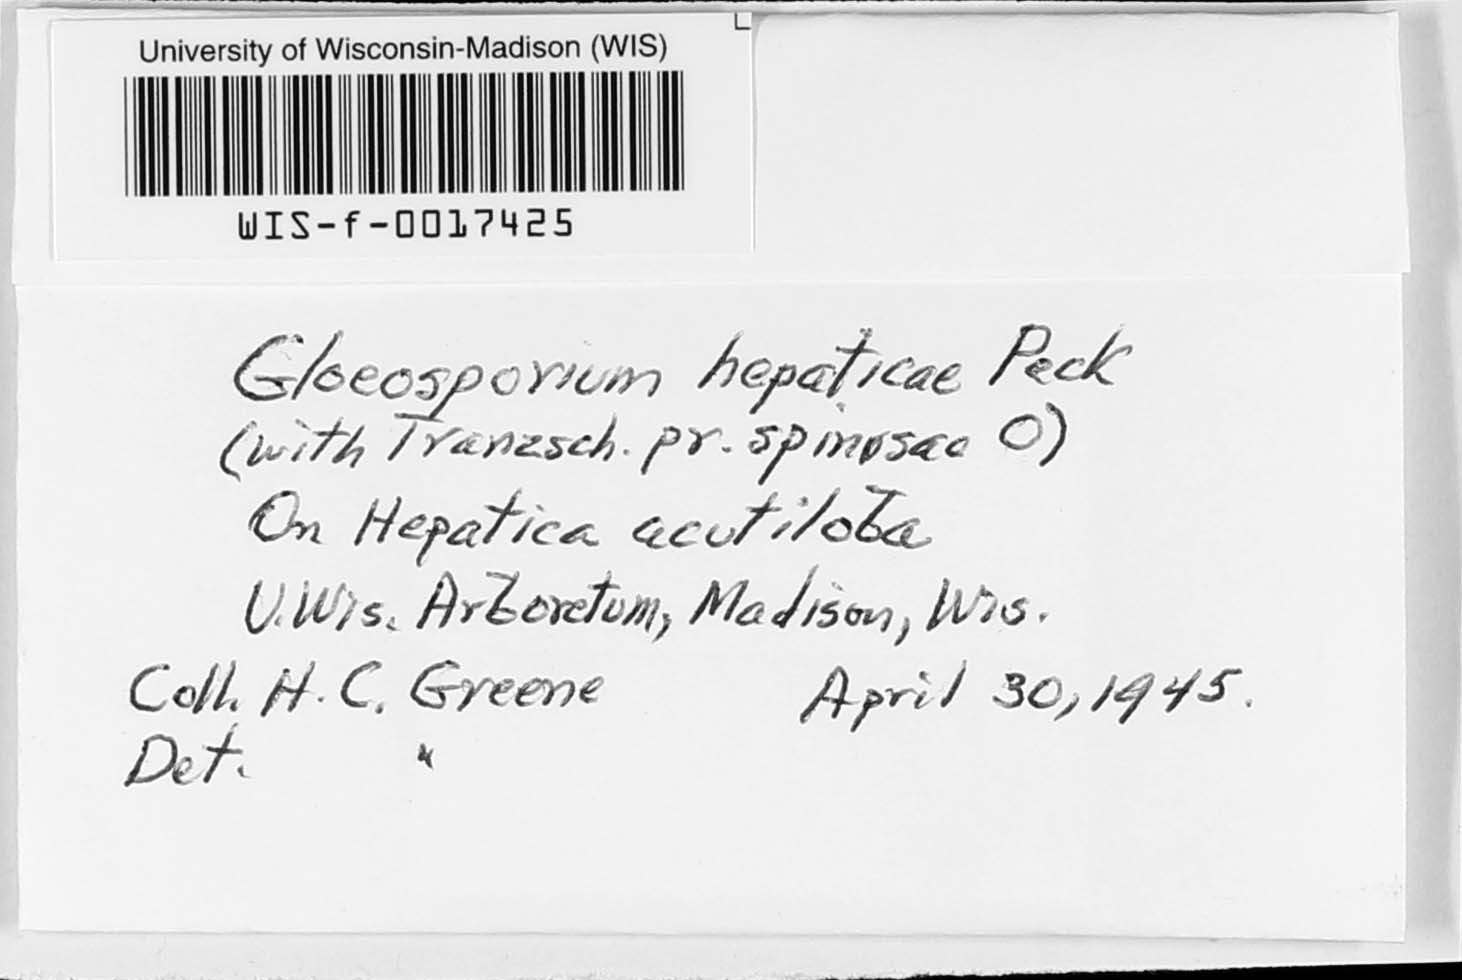 University of Wisconsin-Madison (WIS)
WIS-f-0017425
Gloeosporium hepaticae Peck
(with Tranzsch. pr. spinosae O)
On Hepatica acutiloba
U. Wis. Arboretum, Madison, Wis.
Coll. H. C. Greene April 30, 1945.
Det. "